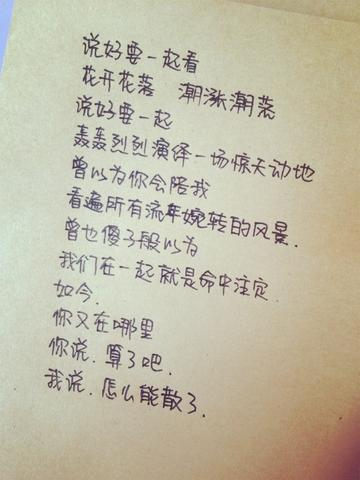 说好要一起看
花开花落 潮涨潮落
说好要一起
轰轰烈烈演绎一场惊天动地
曾以为你会陪我
看遍所有流年婉转的风景.
曾也傻子般以为
我们在一起就是命中注定.
如今.
你又在哪里
你说.算了吧.
我说.怎么能散了.